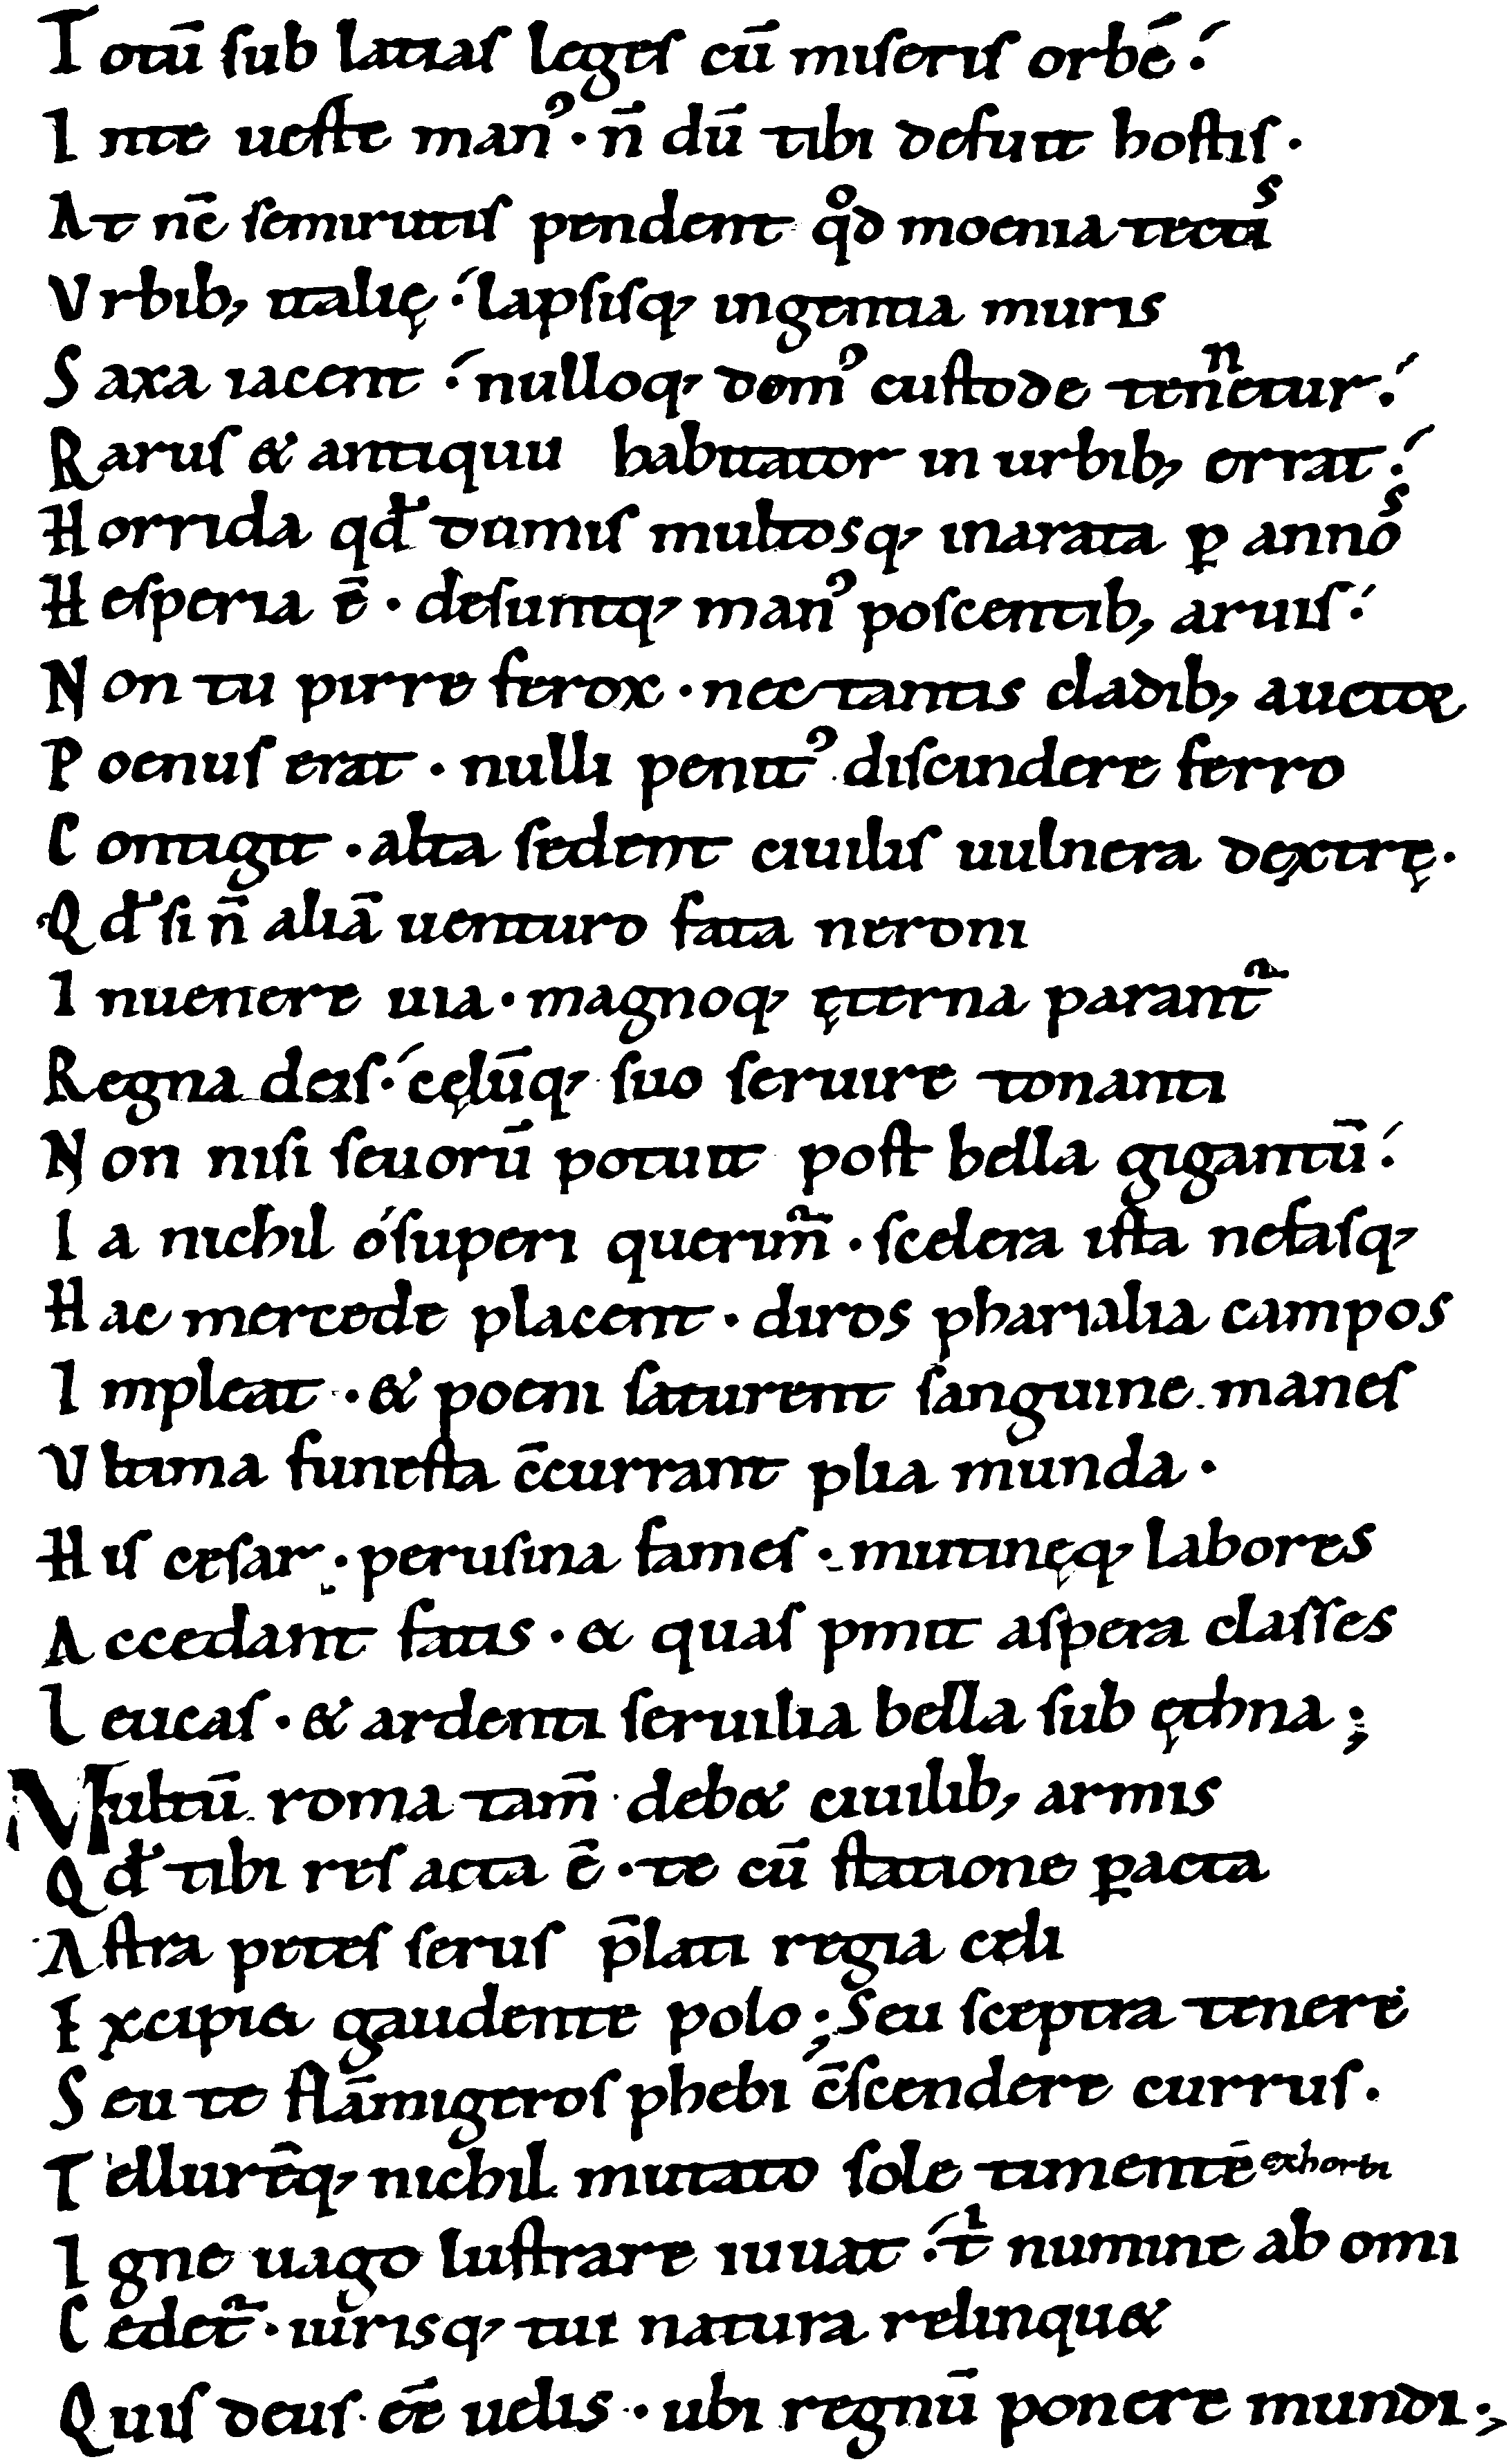 Totū sub latias leges cū miseris orbē.
Inte ueste man᾽ · n̄ dū tibi defuit hostis ·
At nc̄ semirutis pendent qͦd moenia tectis
Vrbib; italię. lapsisq; ingentia muris
Saxa iacent. nulloq; dom᾽ custode tenⁿetur.
Rarus & antiquu habitator in urbib; errat.
Horrida qđ dumis multosq; inarata ꝑ annos
Hesperia ē · desuntq; man᾽ poscentib; aruis.
Non tu pirre ferox · nec tantis cladib; auctoꝝ
Poenus erat · nulli penit᾽ discindere ferro
Contigit · alta sedent ciuilis uulnera dextrę ·
Qđ si n̄ aliā uenturo fata neroni
Inuenere uia · magnoq; ęterna parant᷑
Regna deis. cęlūq; suo seruire tonanti
Non nisi seuorū potuit post bella gigantū.
Ia nichil ó superi querim᷑ · scelera ista nefasq;
Hac mercede placent · diros pharsalia campos
Impleat · & poeni saturent sanguine manes
Vltima funesta c̄currant plia munda ·
His cesar · perusina fames · mutinęq; labores
Accedant fatis · & quas pmit aspera classes
Leucas · & ardenti seruilia bella sub ęthna ;
Multū roma tam̄ deb& ciuilib; armis
Qđ tibi res acta ē · te cū statione ꝑacta
Astra petes serus p̄lati regia celi
Excipi& gaudente polo ; Seu sceptra tenere
Seu te flāmigeros phebi c̄scendere currus ·
Tellurēq; nichil mutato sole timentē exhorti
Igne uago lustrare iuuat. t᷑ numine ab omi
Cedet᷑ · iurisq; tui natura relinqu&
Quis deus ee̅ uelis · ubi regnū ponere mundi ;